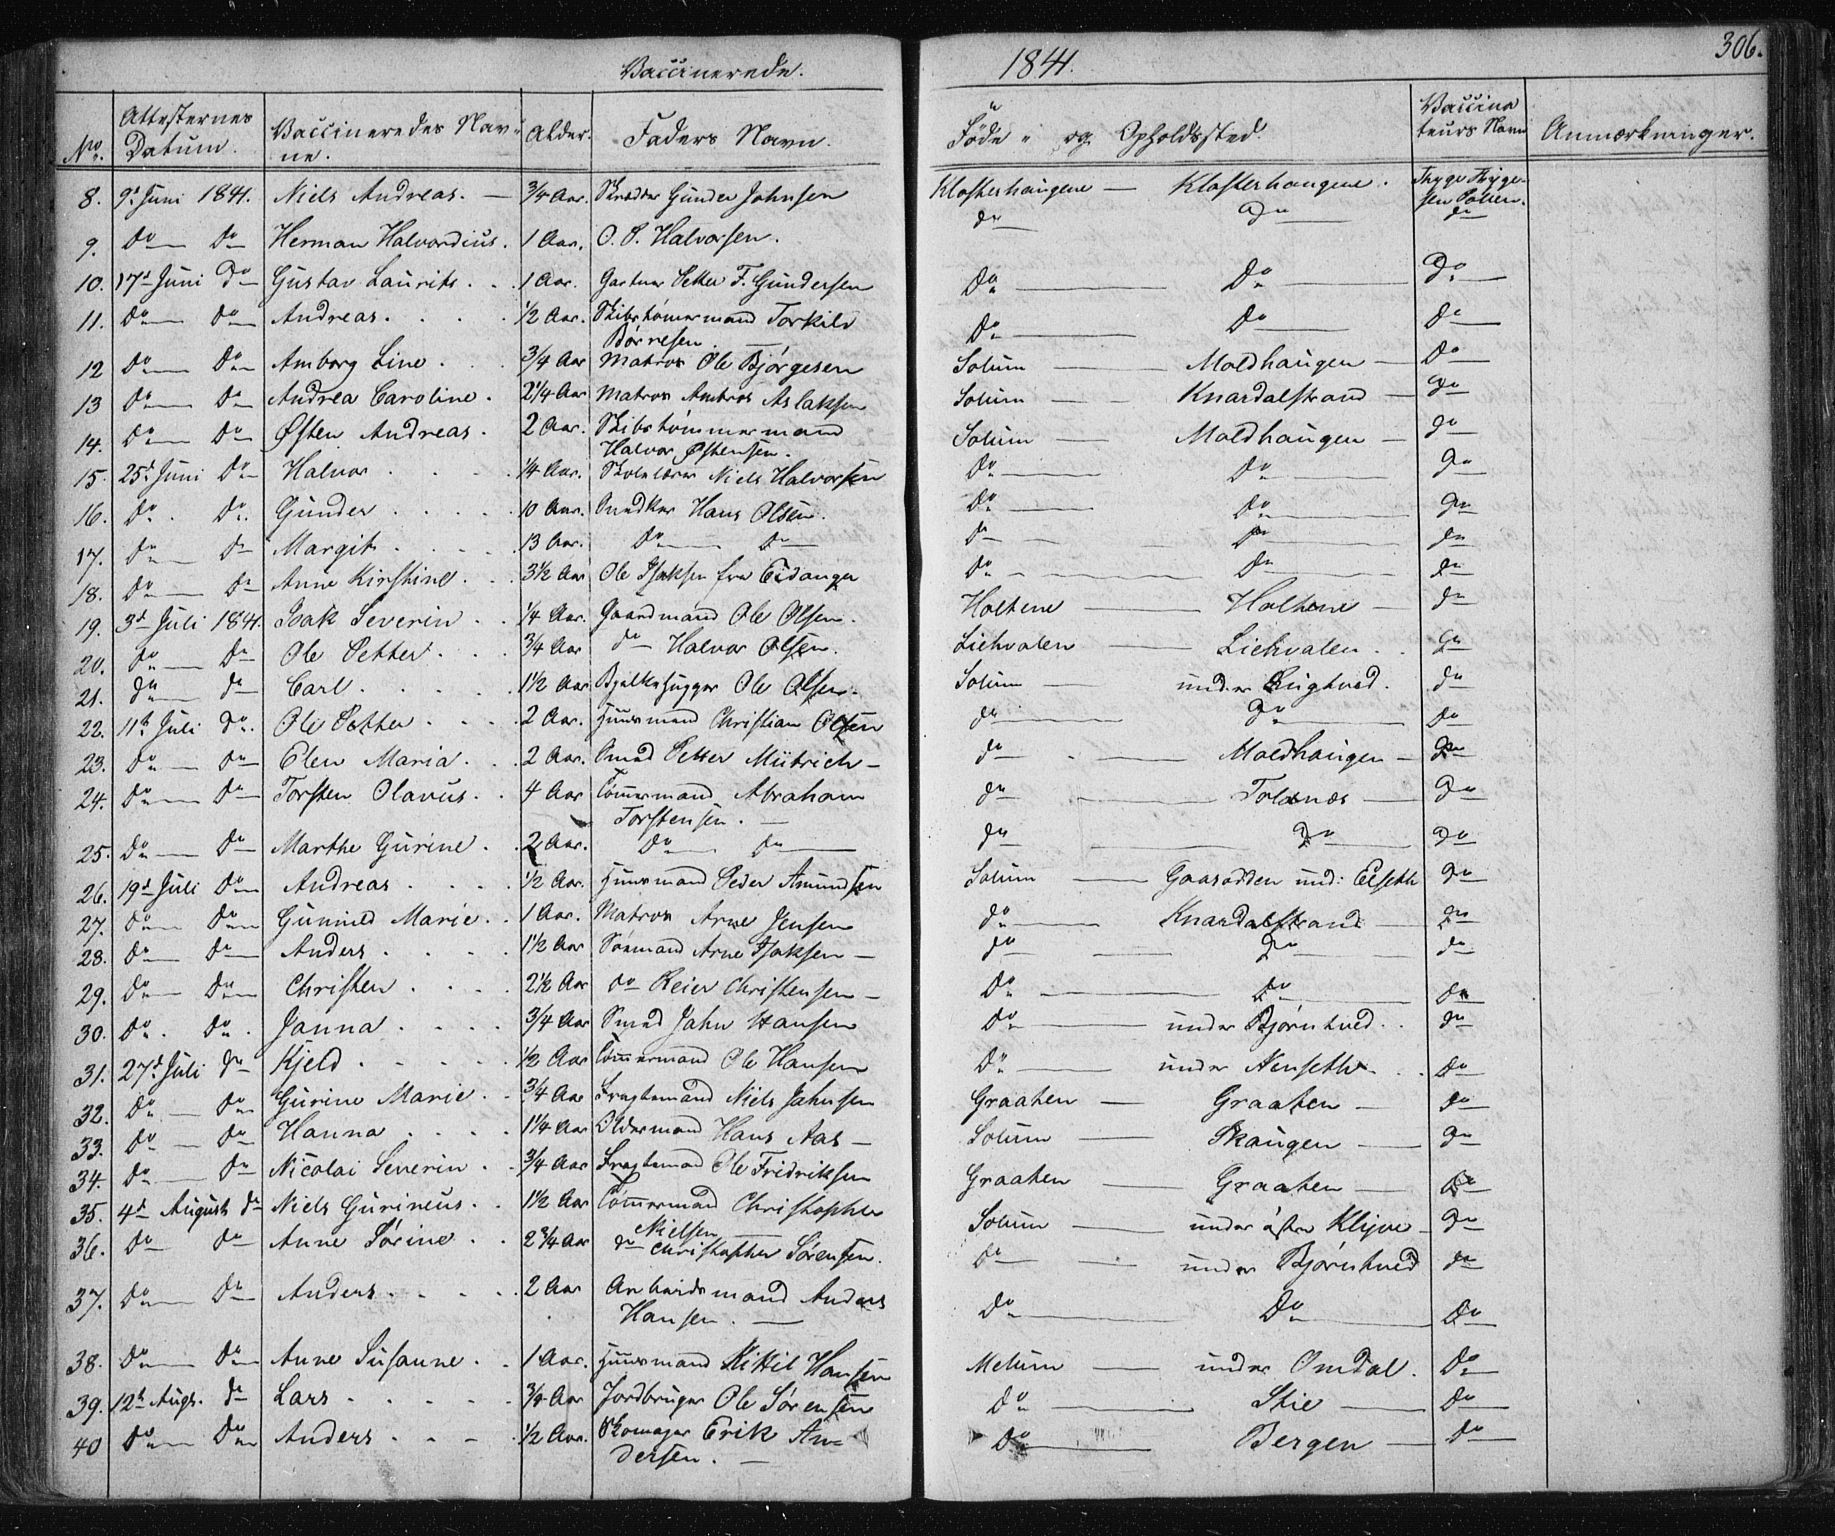 Vaccinerede. 1841. 306.
No. Attesternes Datum. Vaccineredes Navne. Alder. Faders Navn. Føde- og Opholdssted. Vaccinateurs Navn Anmærkninger.
8. 9d Juni 1841. Niels Andreas. — 3/4 Aar. Skrædder Gunder Johnsen Klosterhaugene — Klosterhaugene. Thyge Thygesen Polsen.
9. Do Do Herman Halvordius. 1 Aar. O. P. Halvorsen. do Do do
10. 17d Juni Do Gustav Laurits. 1 Aar. Gartner Petter F. Gundersen Do Do Do
11. Do Do Andreas. 1/2 Aar. Skibstømermand Torkild Børresen. Do Do Do
12 Do Do Amborg Line. 3/4 Aar Matros Ole Bjørgesen Solum — Moldhaugen — Do
13 Do Do Andrea Caroline. 2 1/4 Aar Matros Ambros Aslaksen Solum — Knardalstrand — Do
14. Do Do Østen Andreas. 2 Aar. Skibstømmermand Halvor Østensen. Solum — Moldhaugen — Do
15. 25d Juni Do Halvor 1/4 Aar. Skolelærer Niels Halvorsen Do Do Do
16. Do. Do. Gunder 10 Aar. Snedker Hans Olsen. Do Do Do
17. Do Do Margit 13 Aar. Do Do Do Do do
18. Do Do Anne Kirstine 3 1/2 Aar Ole Isaksen fra Eidanger Do Do do
19. 3d Juli 1841. Isak Severin 1/4 Aar. Gaardmand Ole Olsen. Holtene — Holtene — do
20. Do Do Ole Petter 3/4 Aar do Halvor Olsen. Liehvalen — Liehvalen do
21. do do Carl 1 1/2 Aar Bjelkehugger Ole Olsen. Solum — under do
22. 11te Juli do. Ole Petter 2 Aar. Huusmand Christian Olsen do Do do
23. Do Do Elen Maria 2 Aar. Smed Petter Mütrich — do — Moldhaugen — do
24. Do Do Torsten Olavus 4 Aar Tømermand Abraham Torstensen. — do — Tolænes — Do
25. Do Do Marthe Gurine 2 Aar. Do do do Do Do
26. 19d Juli Do Andreas 1/2 Aar. Huusmand Peder Amundsen Solum — Gaasodden und: Elseth Do
27. Do Do Gunnild Marie 1 Aar. Matros Arne Jensen do — Knardalstrand do
28. Do Do Anders 1 1/2 Aar Sømand Arne Isaksen — do Do do
29. Do Do Christen 2 1/2 Aar do Reier Christensen — Do Do do
30. Do. Do. Janna 3/4 Aar Smed Jahn Hansen Do — under Bjørntved. do
31. 27d Juli do Kjeld 1/2 Aar Tømmermand Ole Hansen Do — under Nenseth do
32. Do Do Gurine Marie 3/4 Aar Fragtemand Niels Jahnsen Graaten — Graaten — do
33. Do Do Hanna 1 1/4 Aar Oldermand Hans Aas — Solum — Skaugen — do
34. Do Do Nicolai Severin 3/4 Aar Fragtemand Ole Fridriksen Graaten — Graaten — do
35. 4d August do Niels Gurineus. 1 1/2 Aar Tømmermand Christopher Nielsen Solum — under østre Klyve — Do
36. Do Do Anne Sørine 2 3/4 Aar do Christopher Sørensen. Do — under Bjørntved do
37. Do Do Anders 2 Aar Arbeidsmand Anders Hansen. — Do Do Do
38. Do Do Anne Susanne 1 Aar. Huusmand Kittil Hansen Melum — under Omdal. Do
39. 12te Augs. do Lars 3/4 Aar Jordbruger Ole Sørensen Do — Stie — Do
40 Do Do Anders 1/2 Aar. Skomager Erik Andersen. — Do — Bergen — Do